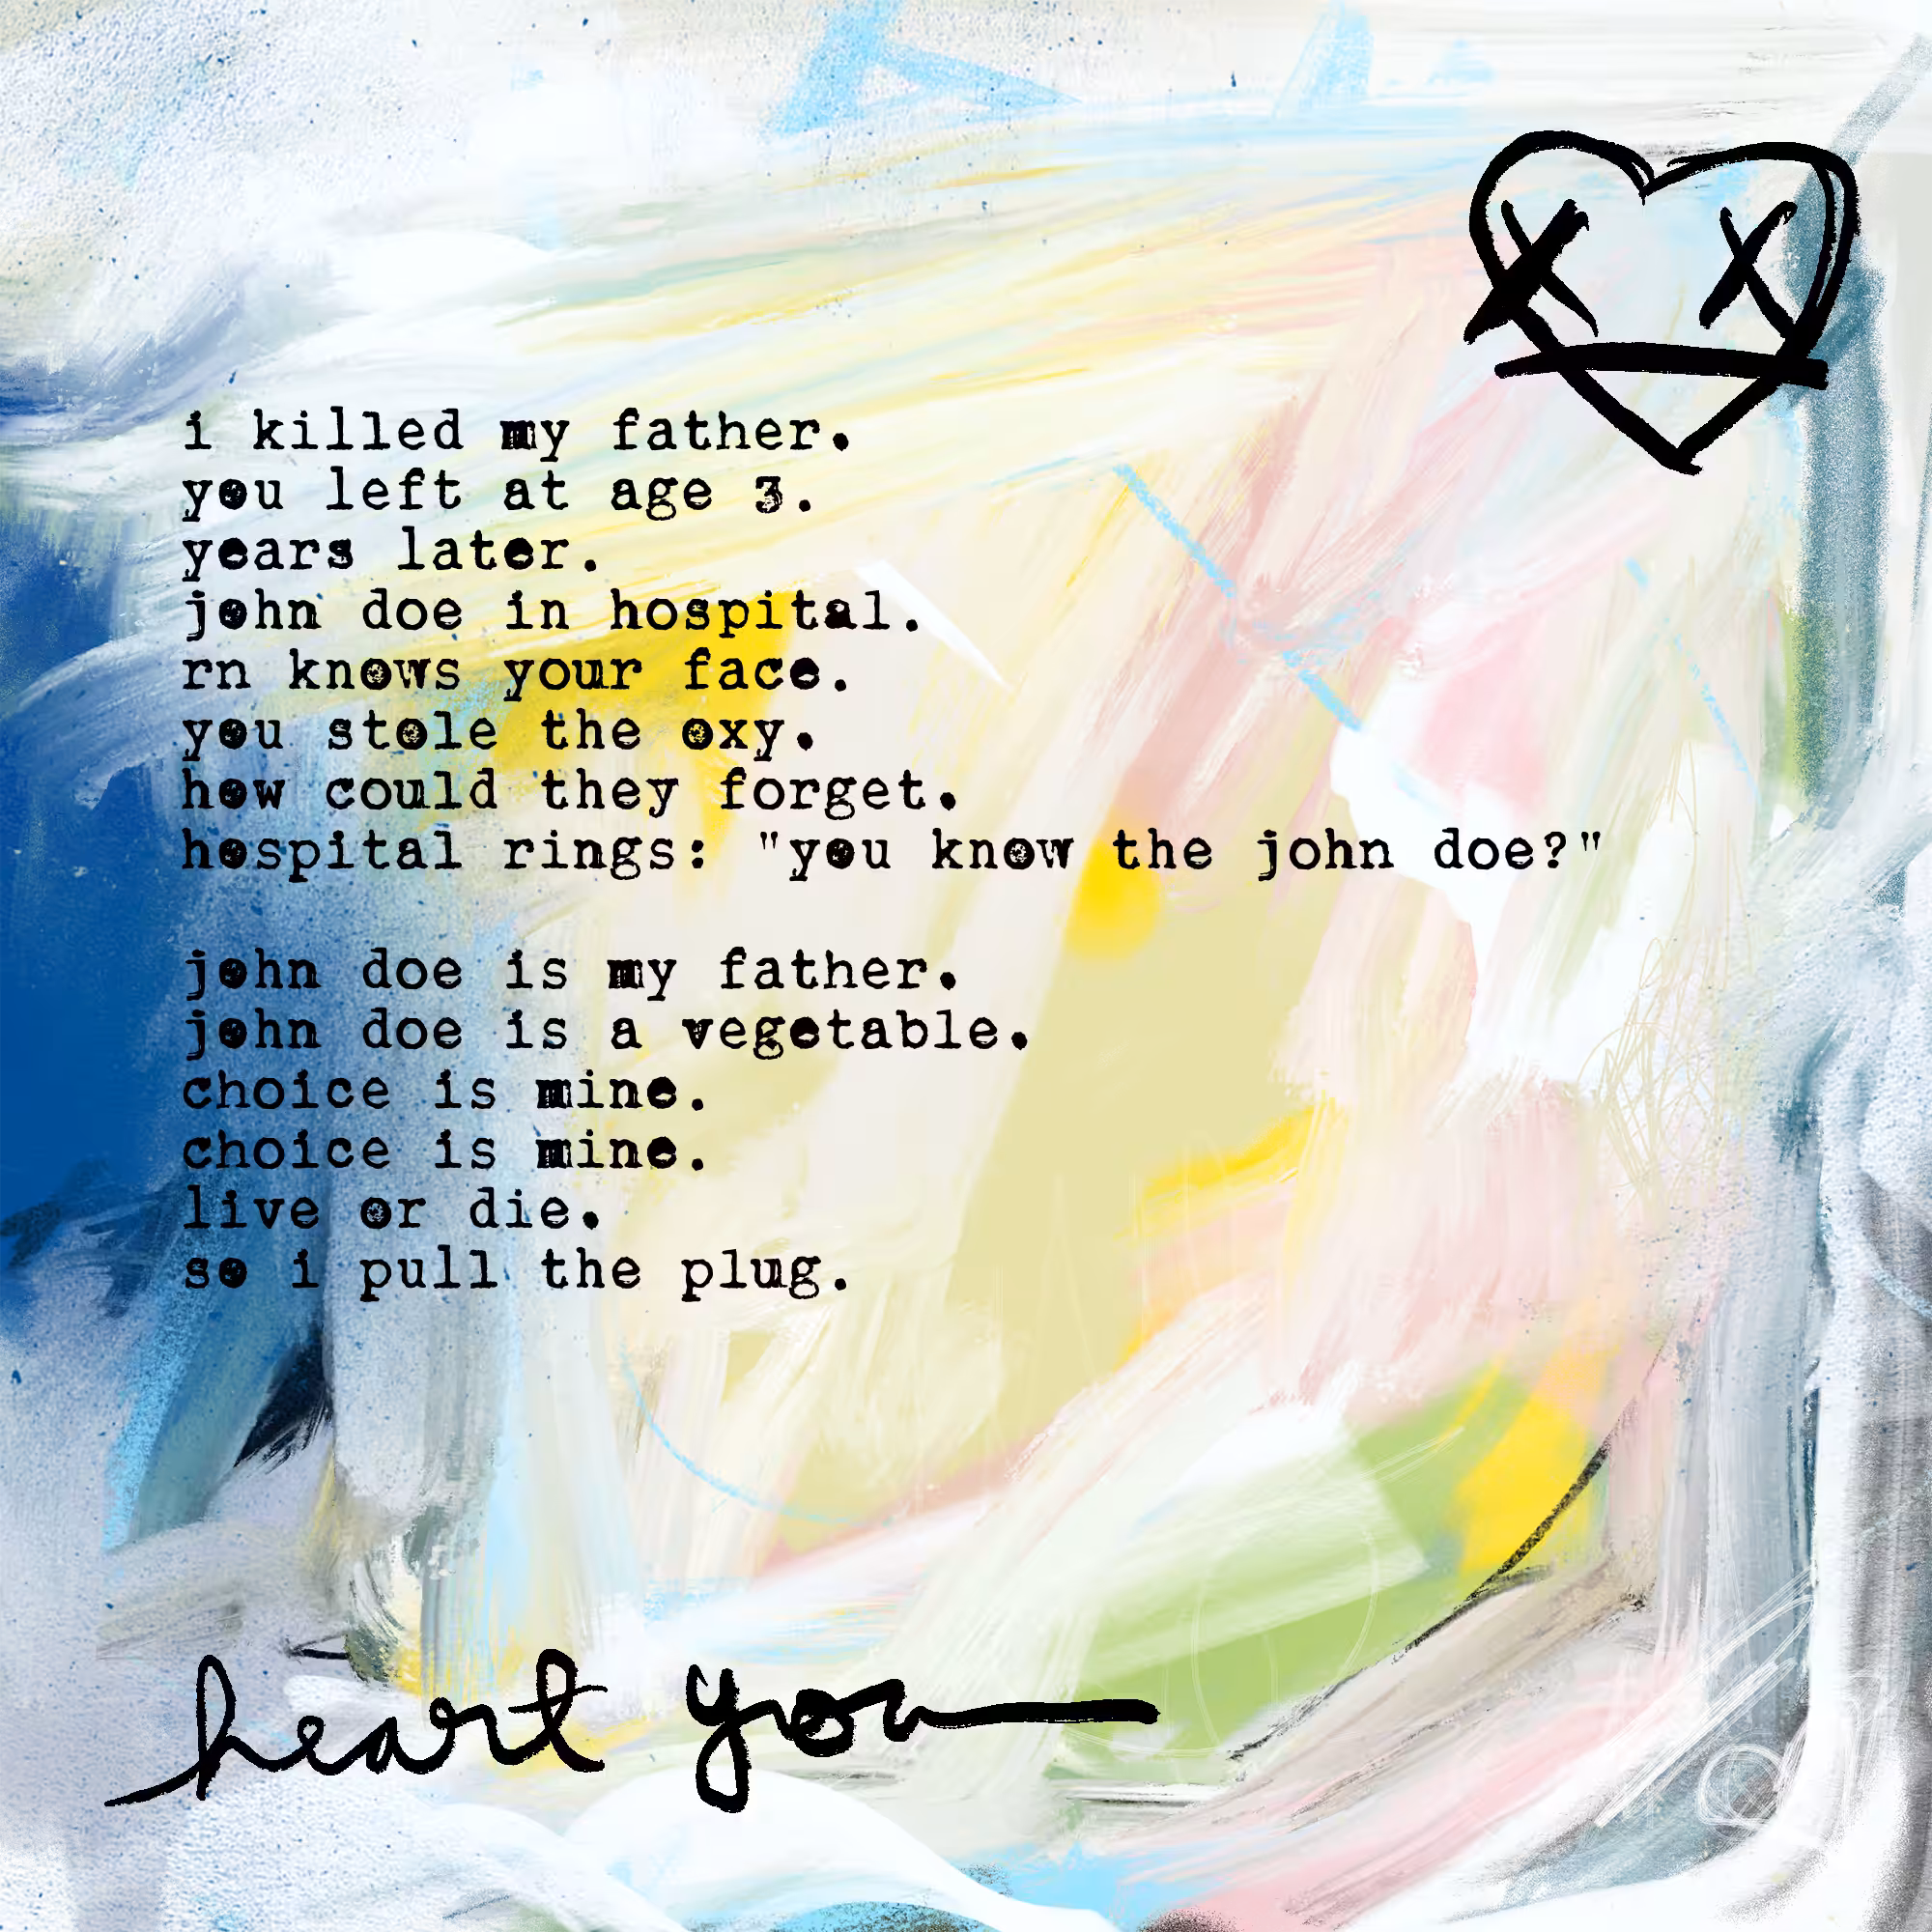 i killed my father.
you left at age 3.
years later.
john doe in hospital.
rn knows your face.
you stole the oxy.
how could they forget.
hospital rings: "you know the john doe?"
john doe is my father.
john doe is a vegetable.
choice is mine.
choice is mine.
live or die.
so i pull the plug.
heart you